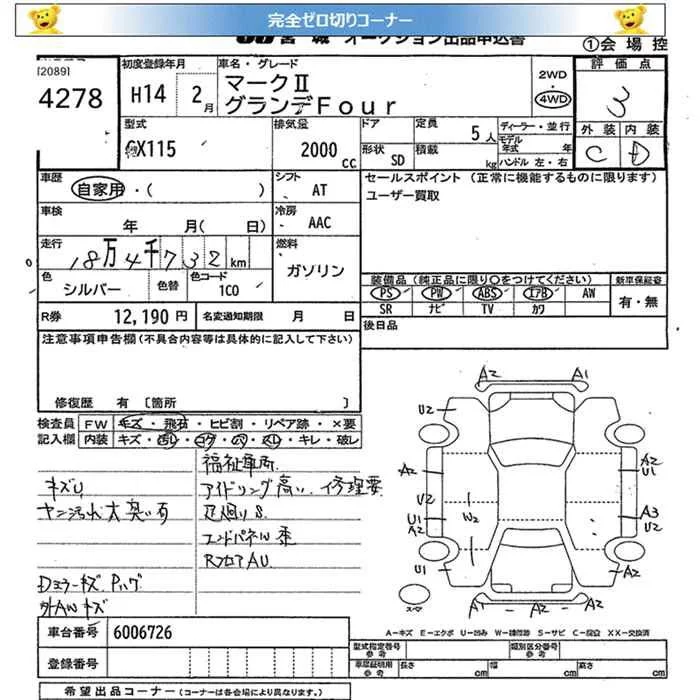 完全ゼロ切りコーナー
JU 宮城 オークション出品申込書
①会場控
[2089]
4278
初度登録年月
H14 2月
車名・グレード
マークⅡ
グランデFour
2WD
4WD
評価点
3
外装 内装
C D
型式
GX115
排気量
2000cc
ドア
形状 SD
定員 5人
積載 kg
ディーラー・並行
モデル年式 年
ハンドル 左・右
車歴
自家用・( )
シフト
AT
セールスポイント (正常に機能するものに限ります)
ユーザー買取
車検
年 月( 日)
冷房
AAC
走行
18万4千732km
燃料
ガソリン
色
シルバー
色替
色コード
1C0
装備品 (純正品に限り○をつけてください)
PS PW ABS エアB AW
SR ナビ TV カワ
新車保証書
有・無
R券 12,190円
名変通知期限 月 日
後日品
注意事項申告欄(不具合内容等は具体的に記入して下さい)
修復歴 有 [箇所
検査員記入欄
FW キズ・飛石・ヒビ割・リペア跡・×要
内装 キズ・汚れ・コゲ・穴・スレ・キレ・破レ
福祉車両
キズU
アイドリング高い 修理要
ヤニ汚れ大 臭い有
足廻りS
エンドパネルW 歪
RフロアAU
Dミラーキズ Pハゲ
外AWキズ
A2 A1
U2 A2
A2 A2
U1
U2 A3
U1 W2 U2
A2
U1 A2
A1 - A2 - A2
スペア
A-キズ E-エクボ U-凹み W-補修跡 S-サビ C-腐食 XX-交換済
車台番号 6006726
登録番号
型式指定番号 参考
類別区分番号 参考
車庫証明用 参考
長さ cm 幅 cm 高さ cm
希望出品コーナー (コーナーは各会場により異なります。)